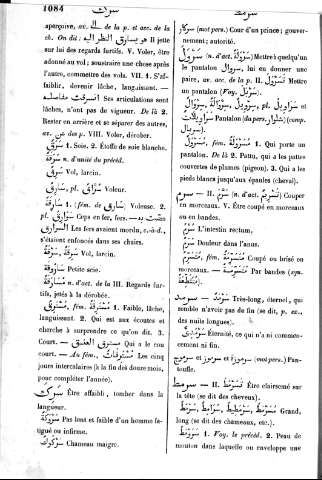 1084
سرق
سرمط
aperçoive, av. الى de la p. et acc. de la
ch. On dit: هو يسارق النظر اليه Il jette
sur lui des regards furtifs. V. Voler, être
adonné au vol; soustraire une chose après
l'autre, commettre des vols. VII. 1. S'af-
faiblir, devenir lâche, languissant. —
انسرقت مفاصله Ses articulations sont
lâches, n'ont pas de vigueur. De là 2.
Rester en arrière et se séparer des autres,
av. عن des p. VIII. Voler, dérober.
سرق 1. Soie. 2. Étoffe de soie blanche.
سرقة n. d'unité du précéd.
سرق Vol, larcin.
سارق pl. سراق Voleur.
سارقة 1. (fém. de سارق) Voleuse. 2.
pl. سوارق Ceps en fer, fers.
السوارق Les fers avaient mordu, c.-à-d.,
s'étaient enfoncés dans ses chairs.
سرقة، سرقة Vol, larcin.
Petite scie.
مسارقة n. d'act. de la III. Regards fur-
tifs, jetés à la dérobée.
مسترق، fém. مسترقة 1. Faible, lâche,
languissant. 2. Qui est aux écoutes et
cherche à surprendre ce qu'on dit. 3.
Court. — مسترق العنق Qui a le cou
court. — Au fém., مسترقات Les cinq
jours intercalaires (à la fin des douze mois,
pour compléter l'année).
سرك Être affaibli, tomber dans la
langueur.
Pas lent et faible d'un homme fa-
tigué ou infirme.
Chameau maigre.
سركار (mot pers.) Cour d'un prince; gouver-
nement; autorité.
سرول (n. d'act. سرولة) Mettre à quelqu'un
le pantalon سروال, lui en donner une
paire, av. acc. de la p. II. تسرول Mettre
un pantalon (Voy. سروال).
سروال، سروالة، سرويل pl. سراويل et
سراويلات Pantalon (du pers. شلوار) (comp.
سربال).
مسرول، fém. مسرولة 1. Qui porte un
pantalon. De là 2. Pattu, qui a les pattes
couvertes de plumes (pigeon). 3. Qui a les
pieds blancs jusqu'aux épaules (cheval).
سرم — II. سرم (n. d'act. تسريم) Couper
en morceaux. V. Être coupé en morceaux
ou en bandes.
سرم L'intestin rectum.
سرم Douleur dans l'anus.
fém. Coupé ou brisé en
morceaux. — Par bandes (syn.
سرمد — سرمد Très-long, éternel, qui
semble n'avoir pas de fin (se dit, p. ex.,
des nuits longues).
سرمدية Éternité, ce qui n'a ni commen-
cement ni fin.
سرموج et سرموز et سرموزة (mot pers.) Pan-
toufle.
سرمط — II. تسرمط Être clairsemé sur
la tête (se dit des cheveux).
سرمط، سرامط، سرمطيط، سرومط Grand,
long (se dit des chameaux, etc.).
سرومط 1. Voy. le précéd. 2. Peau de
mouton dans laquelle on enveloppe une